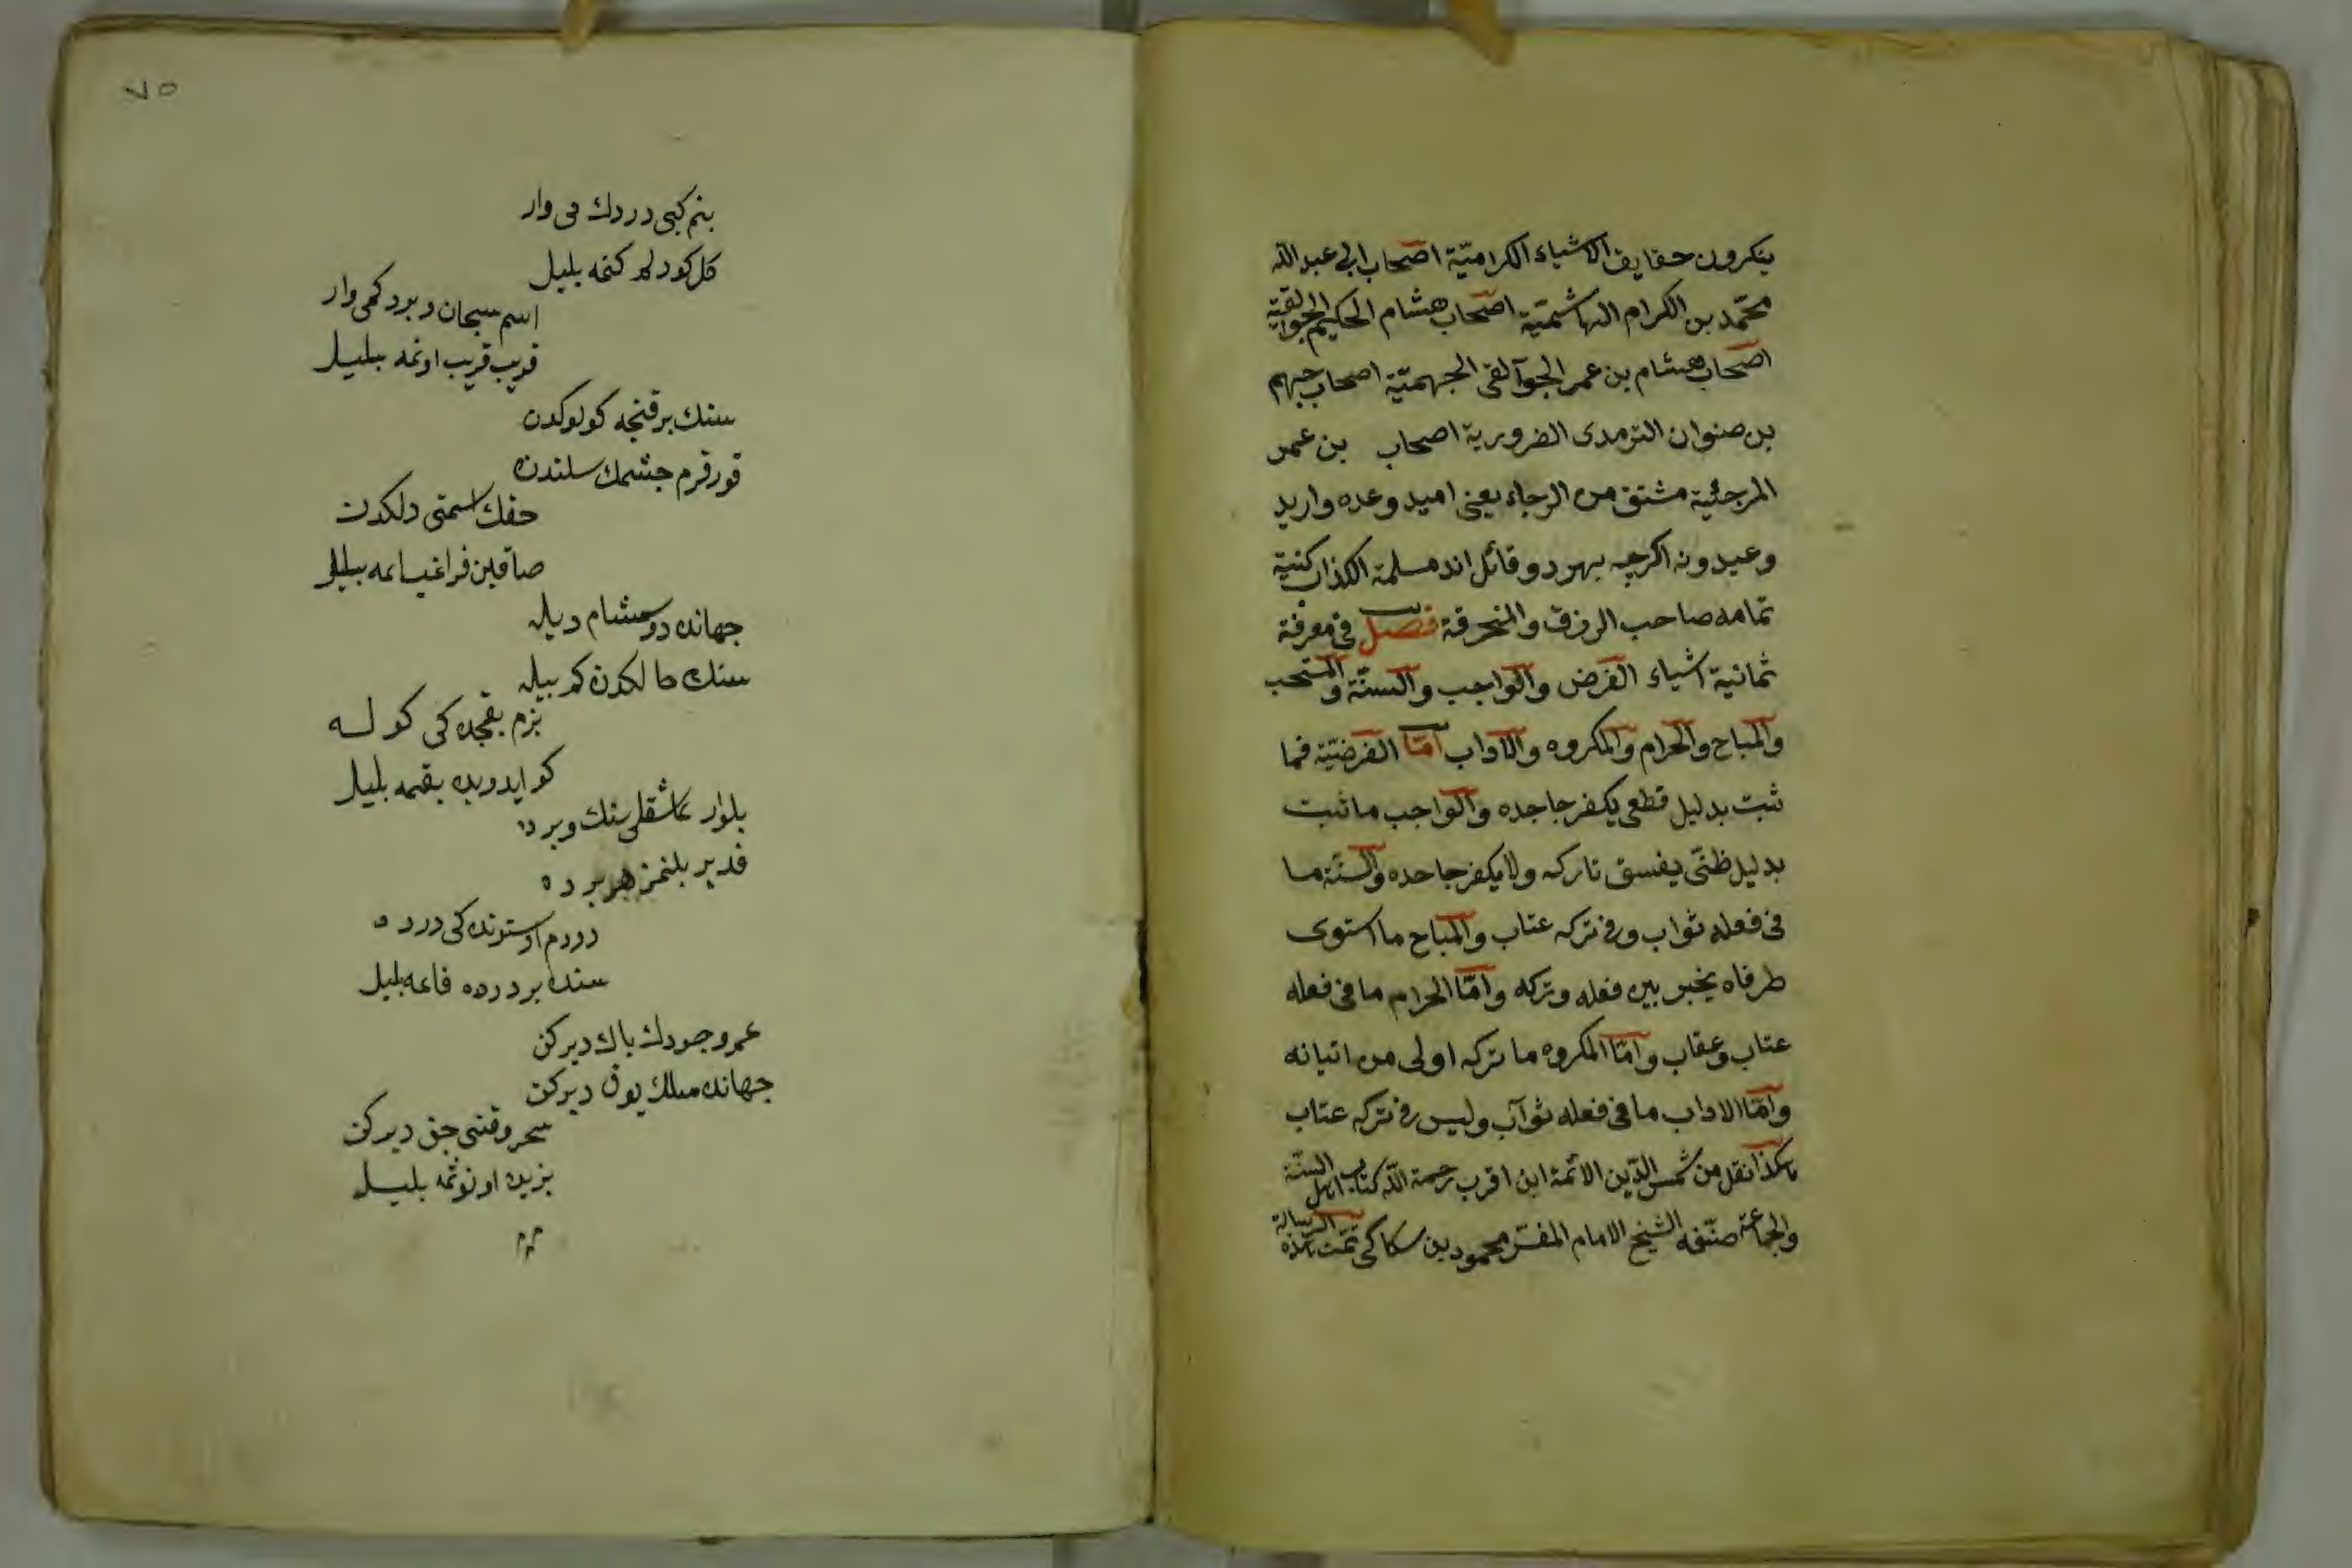 ينكرون حقايق الاشياء الكراميّة اصحاب ابى عبد الله
محمّد بن الكرام الهاشميّة اصحاب هشام الحكيم الجوالقية
اصحاب هشام بن عمر الجوآلقى الجهميّة اصحاب جهم
بن صنوان الترمدى الضرورية اصحاب بن عمر
المرجئية مشتق من الرجاء يعنى اميد وعده واريد
وعيدونه اكرچه يهود وقائل اند مسلمة الكذاب كنية
تمامه صاحب الرزق والنحرقة فصل فى معرفة
ثمانية اشياء الفرض والواجب والسنّة والمستحب
والمباح والحرام والمكروه والآداب امّا الفرضيّة فما
ثبت بدليل قطعى يكفر جاحده والواجب ما ثبت
بدليل ظنّى يفسق تاركه ولا يكفر جاحده والسنّة ما
فى فعله ثواب وفى تركه عتاب والمباح ما استوى
طرفاه يخير بين فعله وتركه وامّا الحرام ما فى فعله
عتاب وعقاب وامّا المكروه ما تركه اولى من اتيانه
وامّا الاداب ما فى فعله ثوآب وليس فى تركه عتاب
هكذا نقل من شمس الدّين الائمّة ابن اقرب رحمة اللّه كتاب اهل السنّة
والجماعة صنّفه الشيخ الامام المفسّر محمود بن سكاكى تمّت هذه الرسالة
٧٥
بنم كبى دردك مى وار
كل كودلم كتمه بلبل
اسم سبحان وبردكمى وار
قريب قريب اوتمه بلبل
سنك برقنجه كولوكدن
قورقرم چشمك سلندن
حقك اسمتى دلكدن
صاقين فراغيسامه بلبل
جهانده دوشام ديله
سنك حالكدن كم بيله
بزم بقجده كى كوله
كو ايدوبده بقمه بلبل
بلوار عاشقلر سنك ويرده
قدير بلنمز هر يرده
دردم اوستونده كى درده
سنده بر درده قاتمه بلبل
عمر وجودك باك ديركن
جهانده مملك يوق ديركن
سحر وقتنى حق ديركن
بزيده اونوتمه بلبل